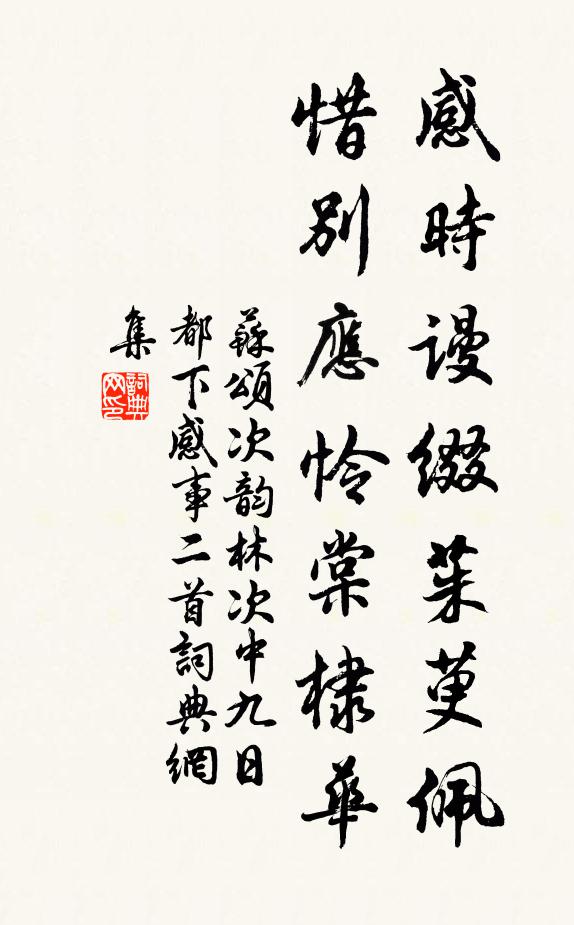 感時謾綴茱萸佩
惜別應怜棠棣華
蘇頌次韵林次中九日
都下感事二首詞典網
集
詞典网印